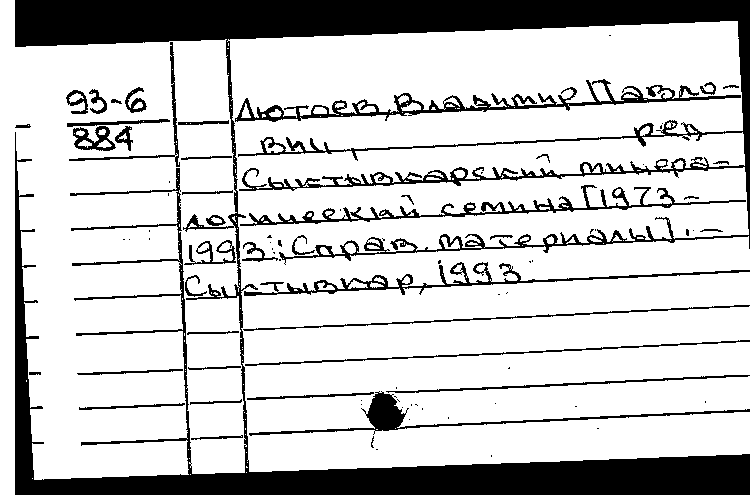 93-6
884
Лютоев, Владимир Павло-
вич, ред
Сыктывкарский минера-
логический семина[1973-
1993: Справ. материалы]. -
Сыктывкар, 1993